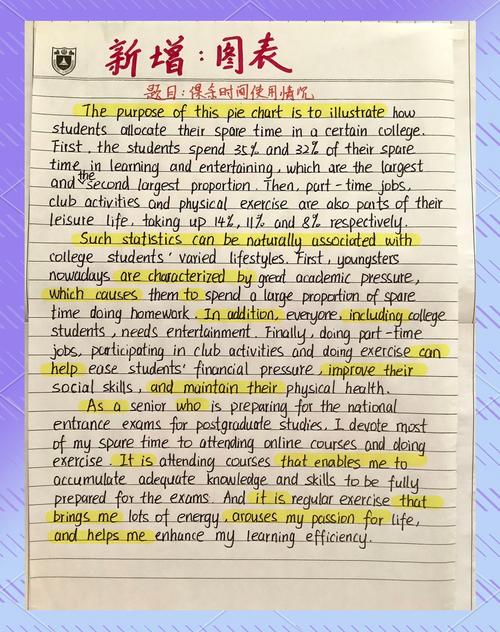 新增：图表
题目：课余时间使用情况
The purpose of this pie chart is to illustrate how
students allocate their spare time in a certain college.
First, the students spend 35% and 32% of their spare
time in learning and entertaining, which are the largest
and the second largest proportion. Then, part-time jobs,
club activities and physical exercise are also parts of their
leisure life, taking up 14%, 11% and 8% respectively.
Such statistics can be naturally associated with
college students' varied lifestyles. First, youngsters
nowadays are characterized by great academic pressure,
which causes them to spend a large proportion of spare
time doing homework. In addition, everyone, including college
students, needs entertainment. Finally, doing part-time
jobs, participating in club activities and doing exercise can
help ease students' financial pressure, improve their
social skills, and maintain their physical health.
As a senior who is preparing for the national
entrance exams for postgraduate studies, I devote most
of my spare time to attending online courses and doing
exercise. It is attending courses that enables me to
accumulate adequate knowledge and skills to be fully
prepared for the exams. And it is regular exercise that
brings me lots of energy, arouses my passion for life,
and helps me enhance my learning efficiency.